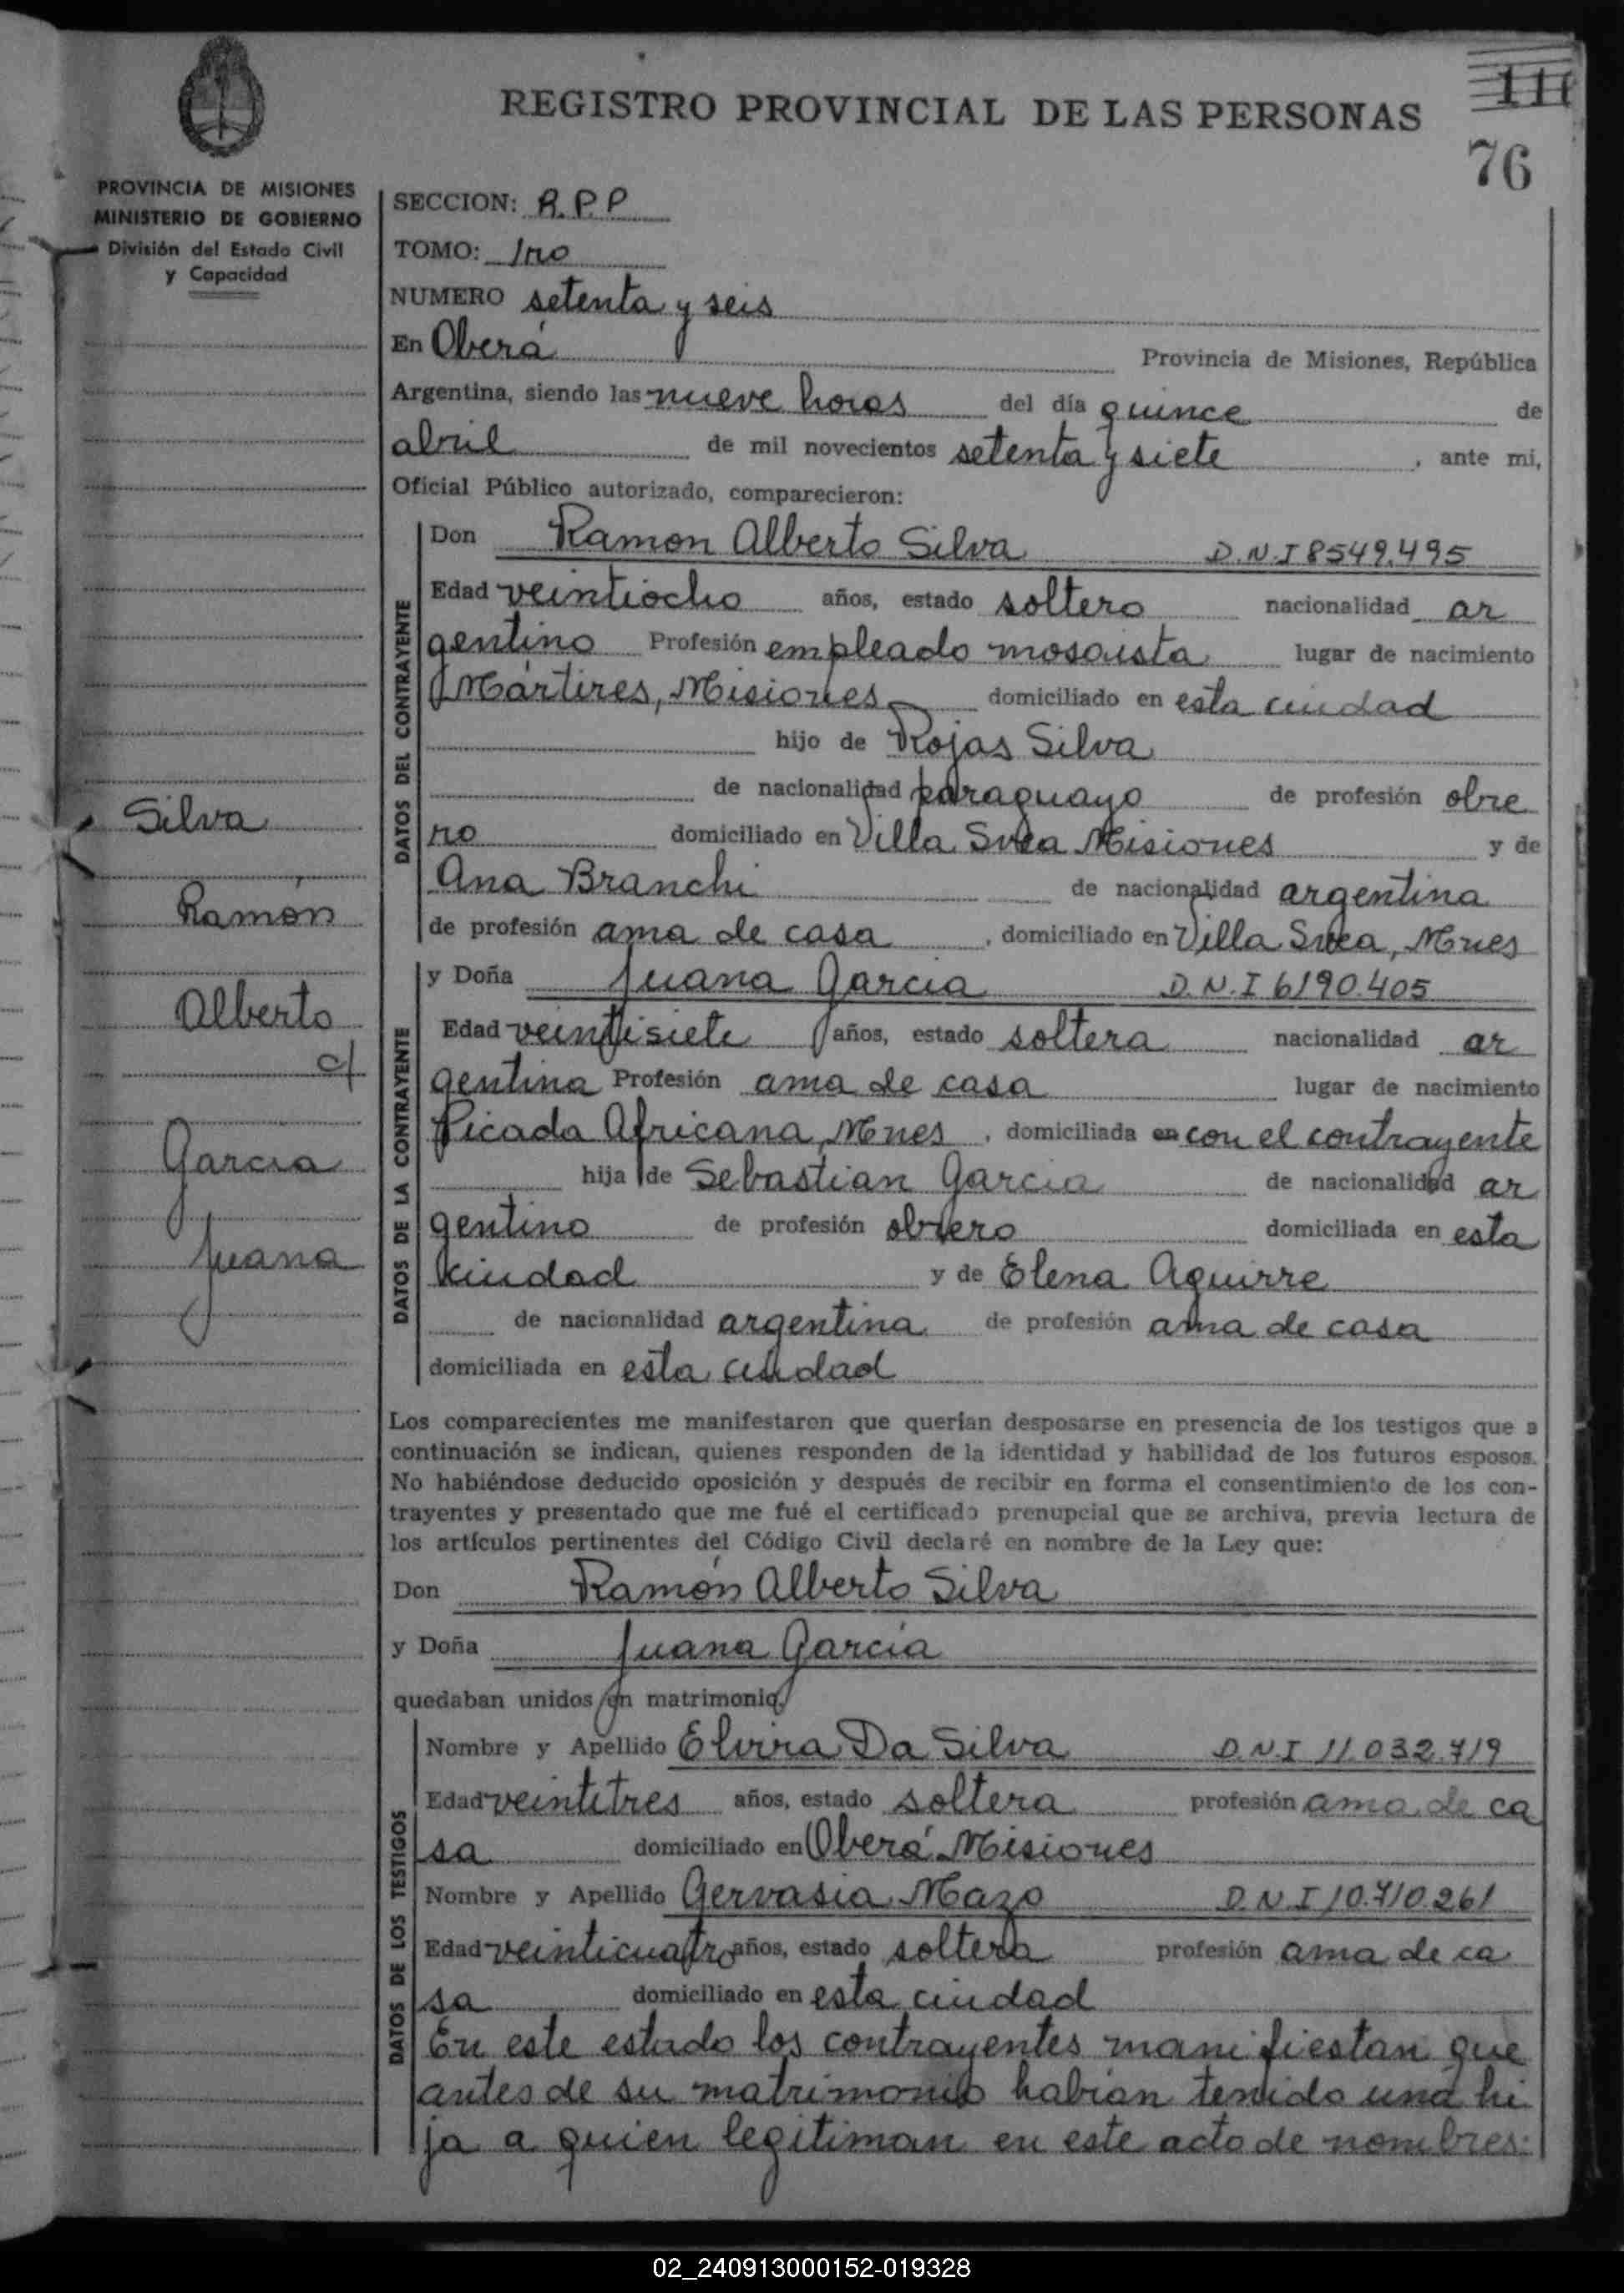 REGISTRO PROVINCIAL DE LAS PERSONAS
111
76
PROVINCIA DE MISIONES
MINISTERIO DE GOBIERNO
División del Estado Civil
y Capacidad
SECCION: R.P.P
TOMO: 1ro
NUMERO setenta y seis
En Oberá Provincia de Misiones, República
Argentina, siendo las nueve horas del día quince de
abril de mil novecientos setenta y siete, ante mi,
Oficial Público autorizado, comparecieron:
DATOS DEL CONTRAYENTE
Don Ramon Alberto Silva D.N.I 8549.495
Edad veintiocho años, estado soltero nacionalidad ar
gentino Profesión empleado mosaista lugar de nacimiento
Mártires, Misiones domiciliado en esta ciudad
hijo de Rojas Silva
de nacionalidad paraguayo de profesión obre
ro domiciliado en Villa Svea Misiones y de
Ana Branchi de nacionalidad argentina
de profesión ama de casa, domiciliado en Villa Svea, Mnes
Silva
Ramón
Alberto
c/
Garcia
Juana
DATOS DE LA CONTRAYENTE
y Doña Juana Garcia D.N.I 6190.405
Edad veintisiete años, estado soltera nacionalidad ar
gentina Profesión ama de casa lugar de nacimiento
Picada Africana, Mnes, domiciliada en con el contrayente
hija de Sebastian Garcia de nacionalidad ar
gentino de profesión obrero domiciliada en esta
ciudad y de Elena Aguirre
de nacionalidad argentina de profesión ama de casa
domiciliada en esta ciudad
Los comparecientes me manifestaron que querían desposarse en presencia de los testigos que a
continuación se indican, quienes responden de la identidad y habilidad de los futuros esposos.
No habiéndose deducido oposición y después de recibir en forma el consentimiento de los con-
trayentes y presentado que me fué el certificado prenupcial que se archiva, previa lectura de
los artículos pertinentes del Código Civil declaré en nombre de la Ley que:
Don Ramón Alberto Silva
y Doña Juana Garcia
quedaban unidos en matrimonio,
DATOS DE LOS TESTIGOS
Nombre y Apellido Elvira Da Silva D.N.I 11.032.719
Edad veintitres años, estado soltera profesión ama de ca
sa domiciliado en Oberá Misiones
Nombre y Apellido Gervasia Mazo D.N.I 10.710.261
Edad veinticuatro años, estado soltera profesión ama de ca
sa domiciliado en esta ciudad
En este estado los contrayentes manifiestan que
antes de su matrimonio habian tenido una hi
ja a quien legitiman en este acto de nombres:
02_240913000152-019328